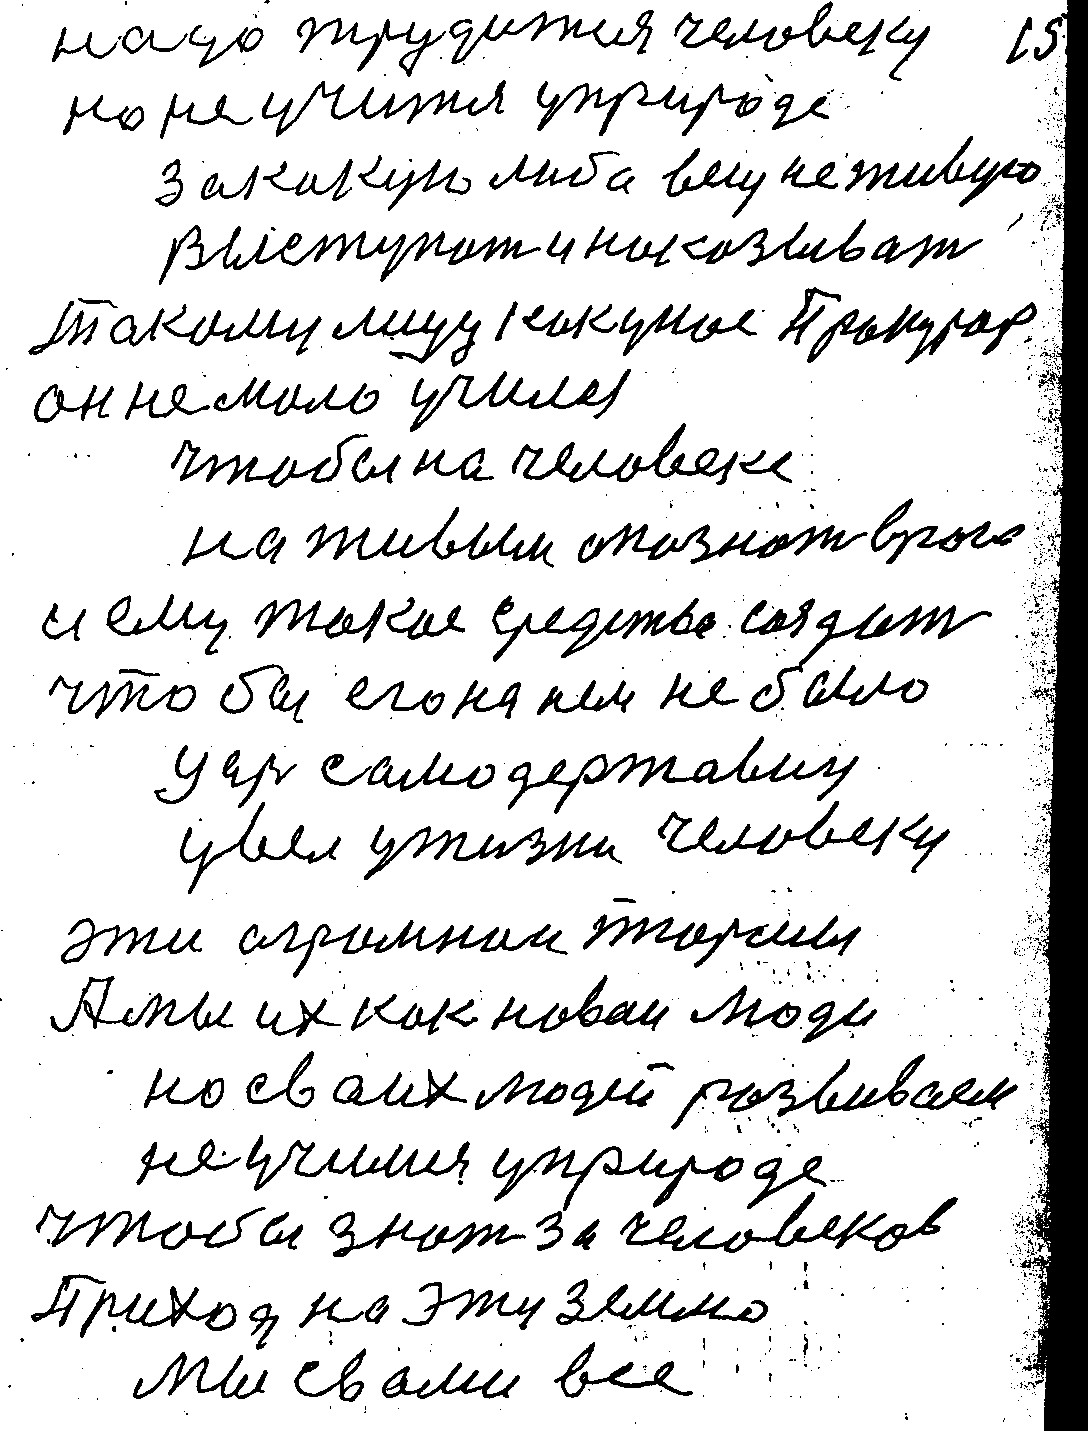 надо трудится человеку 15
но не учится уприроде
за какую либа вещ не живую
Выступат и наказыват
Такому лицу какуное Пракурор
он не мало училс
чтобы на человеке
на живым опознат врага
и ему такое средства создат
что бы его на нем не было
Цар самодержавиу
увел ужизни человеку
эти огромнаи тюрмы
А мы их как новаи люди
но сваих людей развиваем
не учимся уприроде
чтобы знат за человеков
Приход на эту землю
мы свами все